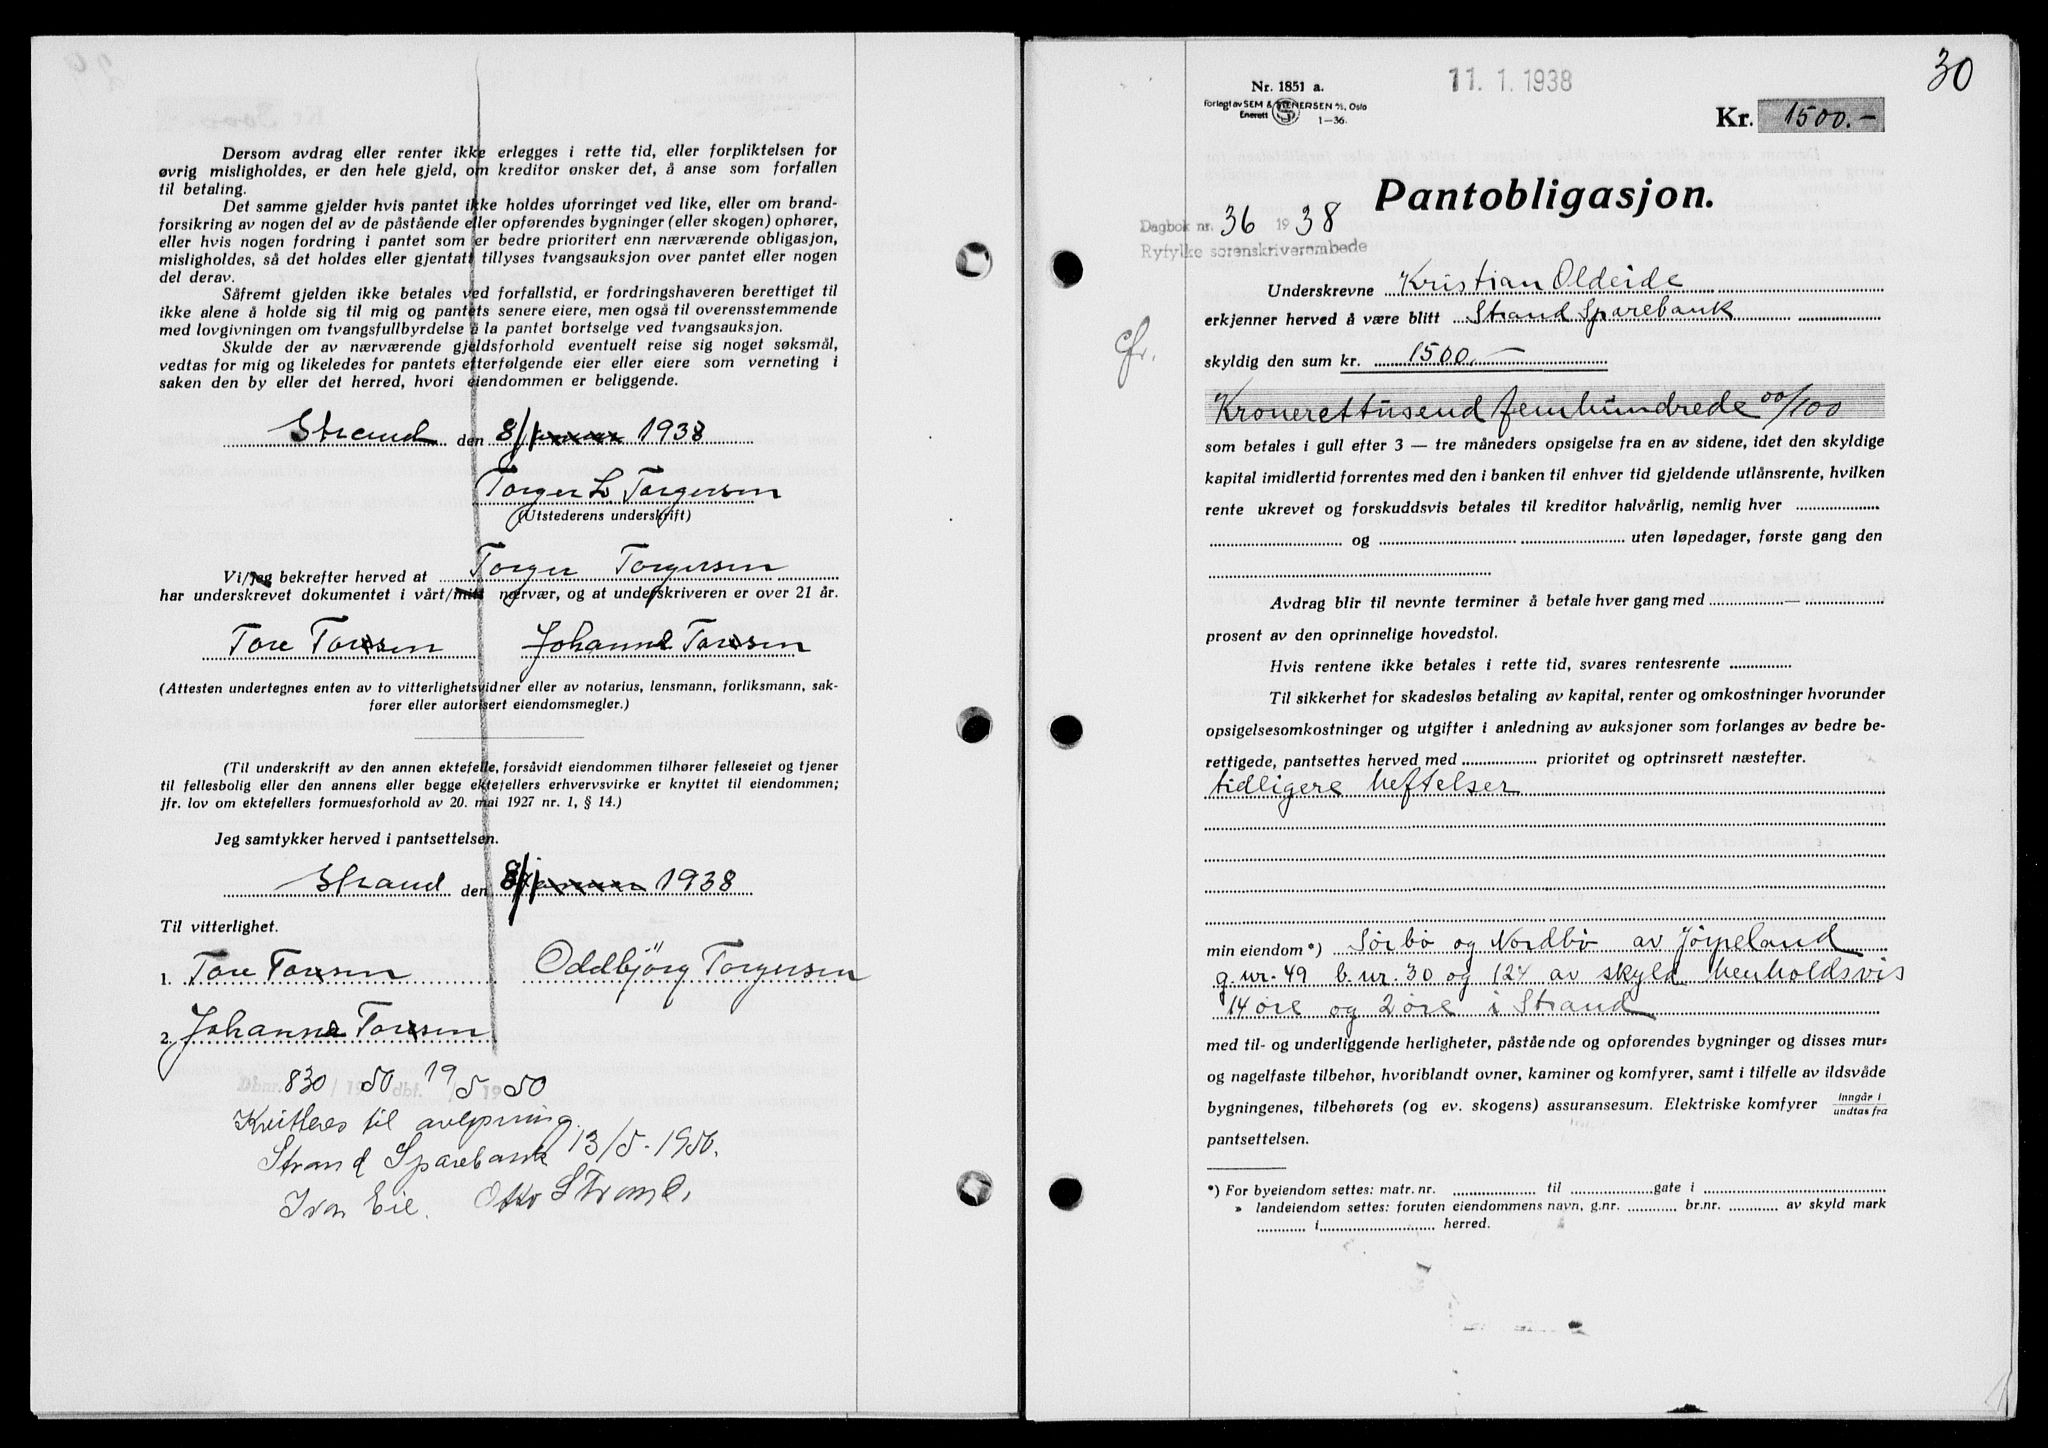 Dersom avdrag eller renter ikke erlegges i rette tid, eller forpliktelsen for
øvrig misligholdes, er den hele gjeld, om kreditor ønsker det, å anse som forfallen
til betaling.
Det samme gjelder hvis pantet ikke holdes uforringet ved like, eller om brand-
forsikring av nogen del av de påstående eller opførendes bygninger (eller skogen) ophører,
eller hvis nogen fordring i pantet som er bedre prioritert enn nærværende obligasjon,
misligholdes, så det holdes eller gjentatt tillyses tvangsauksjon over pantet eller nogen
del derav.
Såfremt gjelden ikke betales ved forfallstid, er fordringshaveren berettiget til
ikke alene å holde sig til mig og pantets senere eiere, men også til overensstemmende
med lovgivningen om tvangsfullbyrdelse å la pantet bortselge ved tvangsauksjon.
Skulde der av nærværende gjeldsforhold eventuelt reise sig noget søksmål,
vedtas for mig og likeledes for pantets efterfølgende eier eller eiere som verneting i
saken den by eller det herred, hvori eiendommen er beliggende.
Strand den 8/1 januar 1938
Torger L. Torgersen
(Utstederens underskrift)
Vi/jeg bekrefter herved at Torger Torgersen
har underskrevet dokumentet i vårt/mitt nærvær, og at underskriveren er over 21 år.
Tore Johanne
(Attesten undertegnes enten av to vitterlighetsvidner eller av notarius, lensmann, forliksmann, sak-
fører eller autorisert eiendomsmegler.)
(Til underskrift av den annen ektefelle, forsåvidt eiendommen tilhører felleseiet og tjener
til fellesbolig eller den annens eller begge ektefellers erhvervsvirke er knyttet til eiendommen;
jfr. lov om ektefellers formuesforhold av 20. mai 1927 nr. 1, § 14.)
Jeg samtykker herved i pantsettelsen.
Strand den 8/1 januar 1938
Til vitterlighet.
1. Tore Oddbjörg Torgersen
2. Johanne
Dbnr. 830 / 1950 dbf. 19/5 1950
Kvitteres til avlysning.
Strand Sparebank 13/5-1950.
Ivar Eie. Otto
30
11. 1. 1938
Nr. 1851 a.
Forlagt av SEM & STENERSEN A/S, Oslo
Enerett S 1—36.
Kr. 1500.-
Pantobligasjon.
Dagbok nr. 36 1938
Ryfylke sorenskriverembede
cfr.
Underskrevne Kristian Oldeide
erkjenner herved å være blitt Strand Sparebank
skyldig den sum kr. 1500.-
Kroner ettusend femhundrede 00/100
som betales i gull efter 3 — tre måneders opsigelse fra en av sidene, idet den skyldige
kapital imidlertid forrentes med den i banken til enhver tid gjeldende utlånsrente, hvilken
rente ukrevet og forskuddsvis betales til kreditor halvårlig, nemlig hver
og uten løpedager, første gang den
Avdrag blir til nevnte terminer å betale hver gang med —
prosent av den oprinnelige hovedstol.
Hvis rentene ikke betales i rette tid, svares rentesrente
Til sikkerhet for skadesløs betaling av kapital, renter og omkostninger hvorunder
opsigelsesomkostninger og utgifter i anledning av auksjoner som forlanges av bedre be-
rettigede, pantsettes herved med prioritet og optrinsrett næstefter.
tidligere heftelser
min eiendom*) Sørbö og Nordbö av Jörpeland
g.nr. 49 b.nr. 30 og 124 av skyld henholdsvis
14 öre og 2 öre i Strand
med til- og underliggende herligheter, påstående og opførendes bygninger og disses mur-
og nagelfaste tilbehør, hvoriblandt ovner, kaminer og komfyrer, samt i tilfelle av ildsvåde
bygningenes, tilbehørets (og ev. skogens) assuransesum. Elektriske komfyrer inngår i / undtas fra
pantsettelsen.
*) For byeiendom settes: matr. nr. til gate i
» landeiendom settes: foruten eiendommens navn, g.nr. br.nr. av skyld mark
i herred.